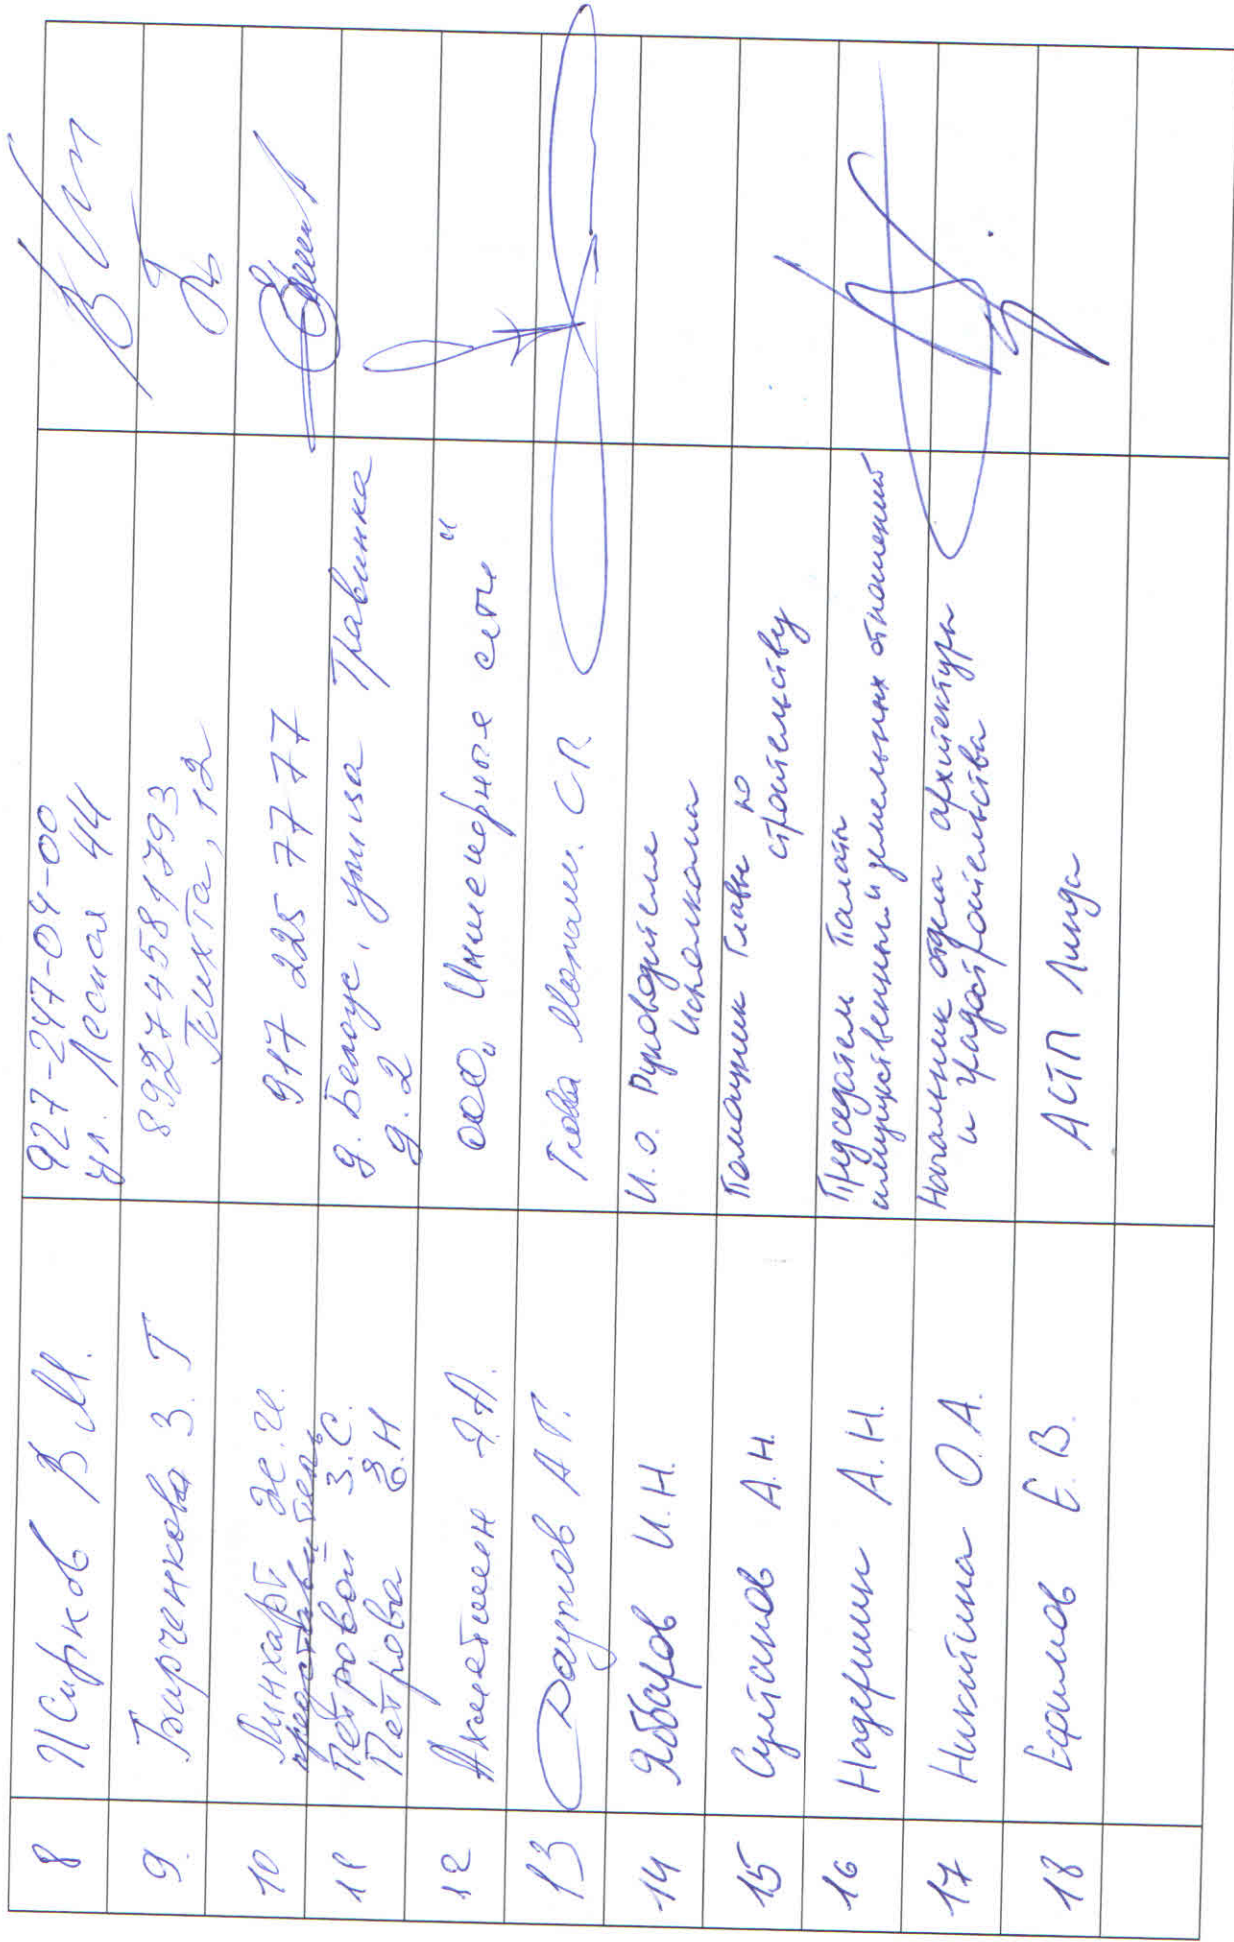 8 Цирков В М. 927-247-04-00
ул. Лесная 44
9. Барченкова З. Т 89274581793
Пихта, 12
10 Линхарт Ж. И. 917 225 77 77
представитель
11 Петровой З. С. д. Белоус. улица Травинка
Петрова Э. Н д. 2
12 Ахметшин Я.А. ООО „Инженерные сети“
13 Даутов А Г. Глава СП
14 Яббаров И.Н. И.О. Руководителя
исполкома
15 Султанов А.Н. Помощник Главы по
строительству
16 Надршин А.Н. Председатель Палаты
имущественных и земельных отношений
17 Никитина О.А. Начальник отдела архитектуры
и градостроительства
18 Ефимов Е.В. АСТП Линда